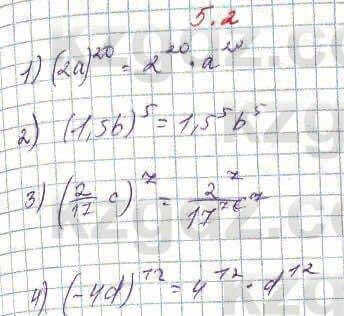 5.2
1) (2a)^20 = 2^20 · a^20
2) (-1,5b)^5 = 1,5^5 b^5
3) (2/17 c)^7 = 2^7/17^7 c^7
4) (-4d)^12 = 4^12 · d^12